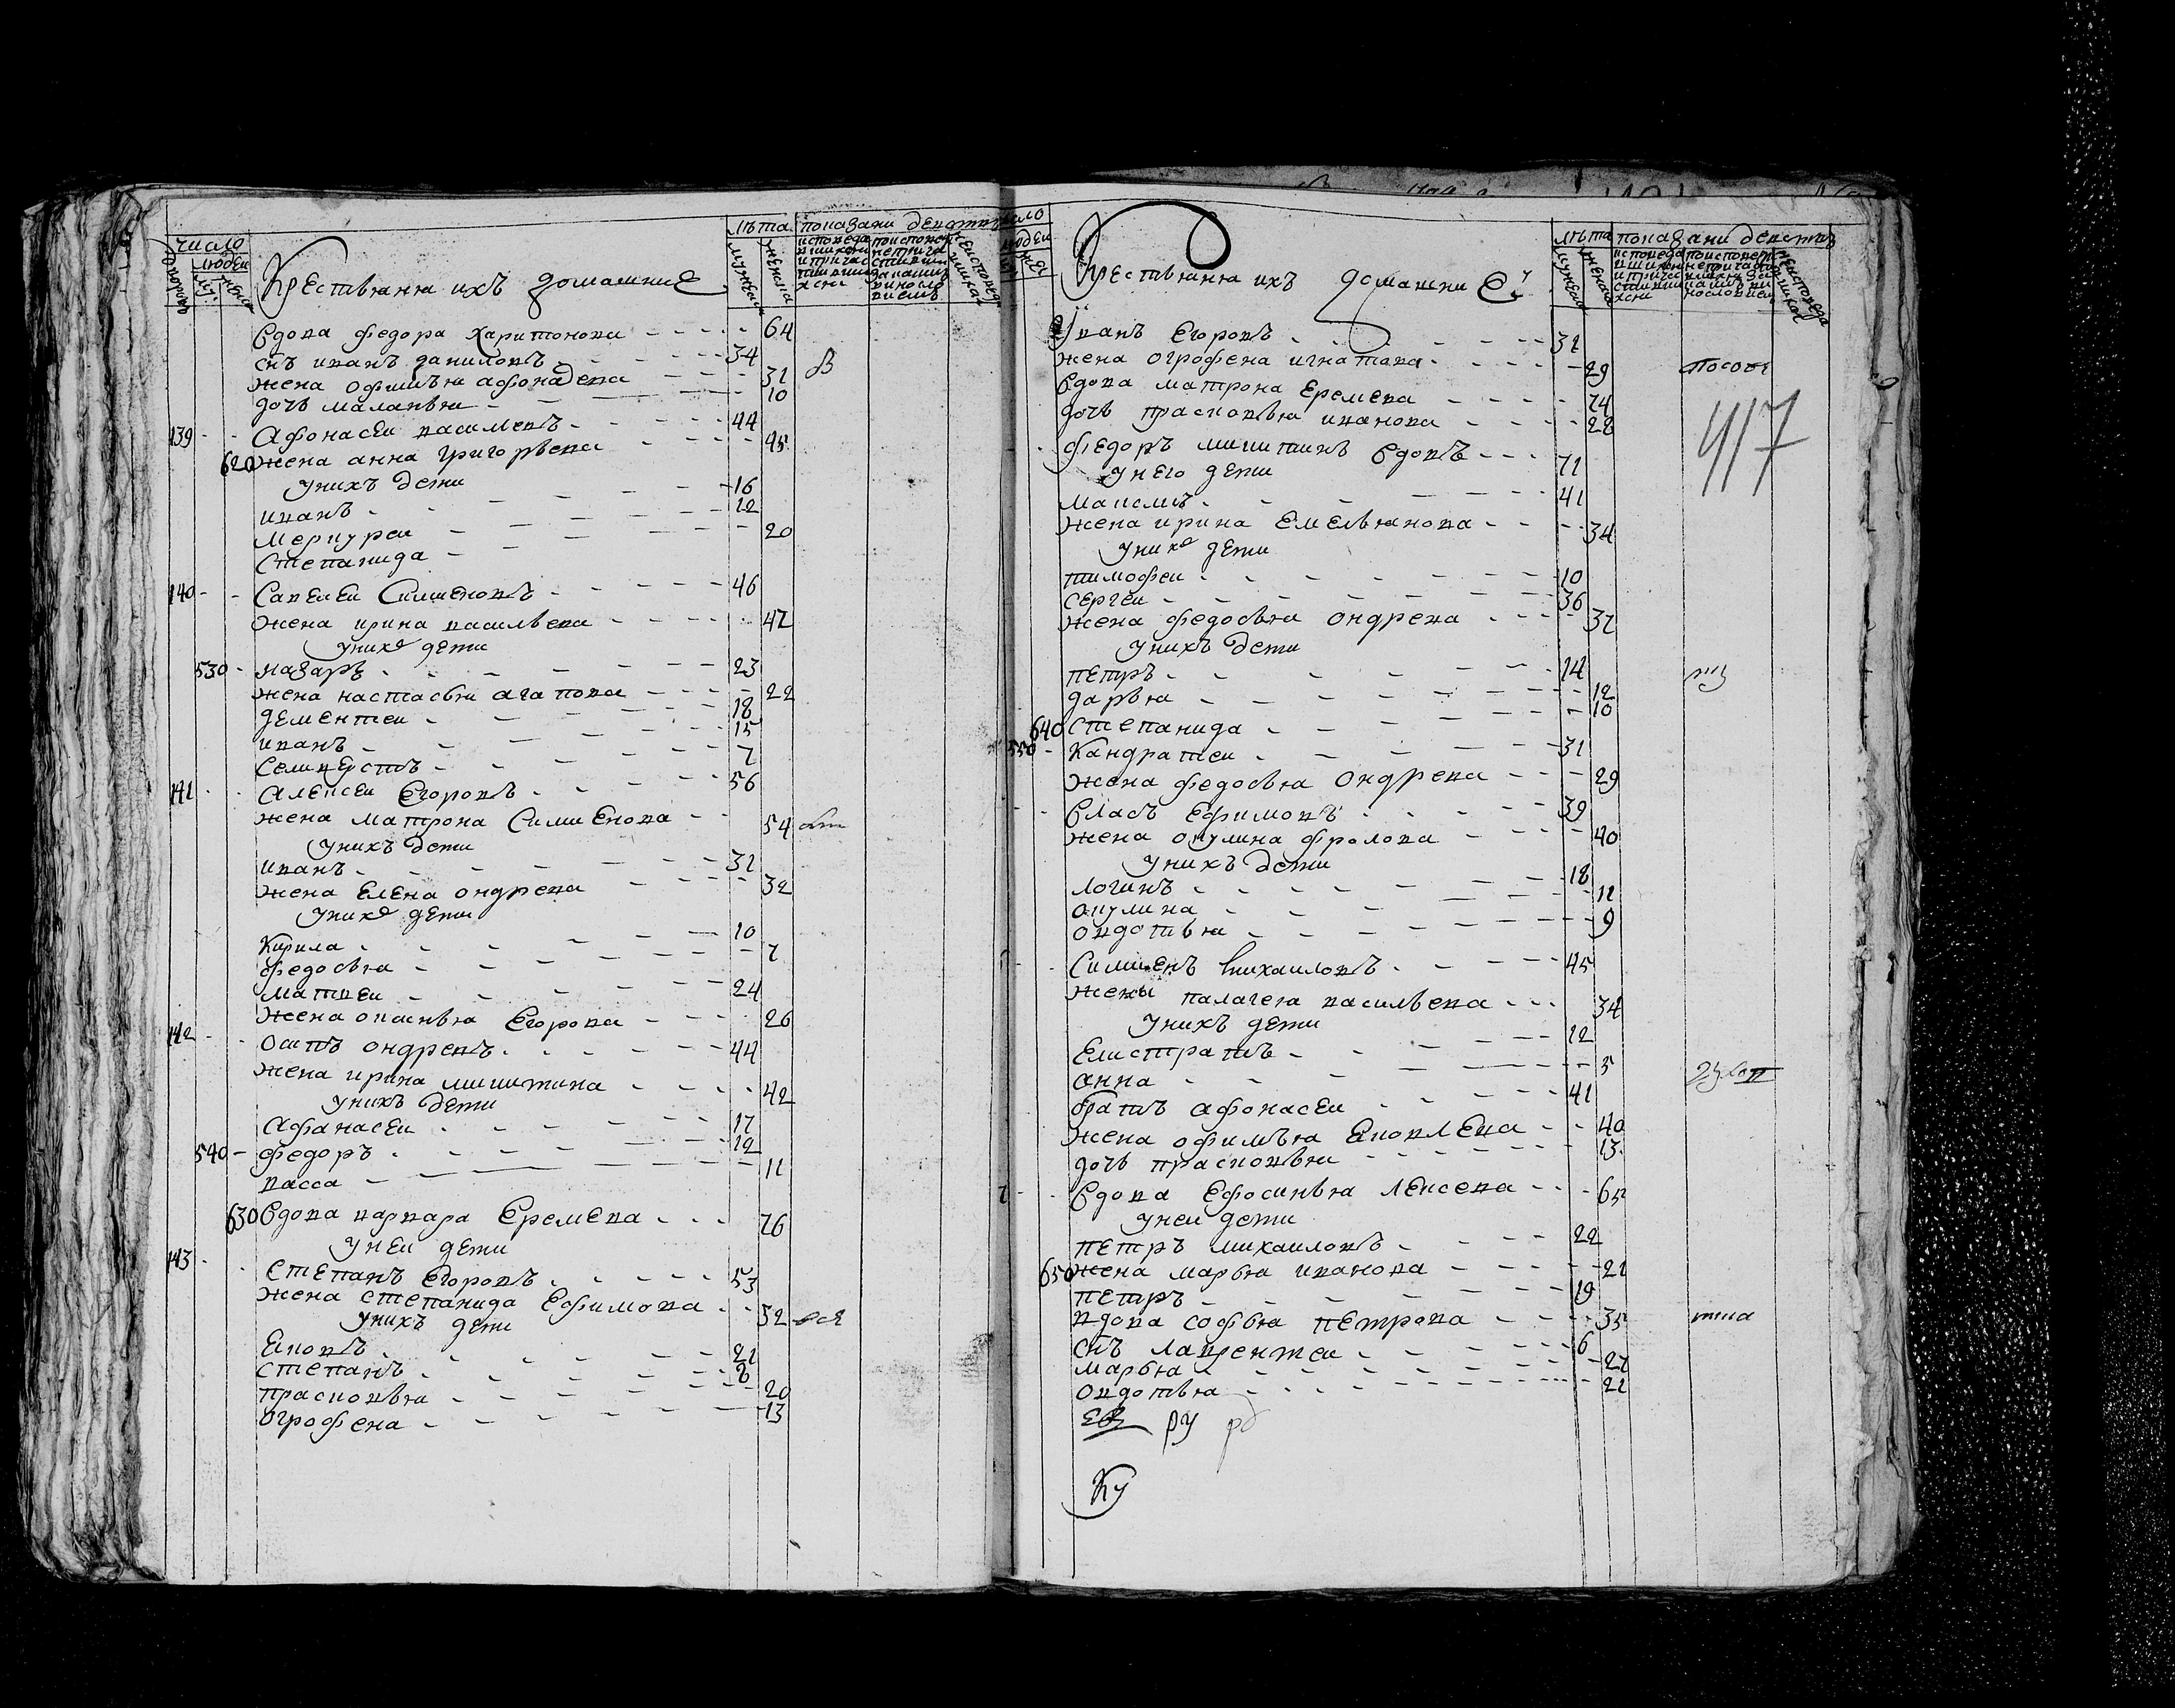 число
людей
Крестьяня ихъ домашние
лѣта
мужеска
женска
показани действ
вдова федора харитонова 64
снъ иванъ даниловъ 34
жена офимья афонасева 31
дочь маланья 10
139 Афонасеи васильевъ 44
620 жена анна григорьева 45
у нихъ дети
иванъ 16
меркуреи 12
степанида 20
140 Савелеи Сименовъ 46
жена ирина васильева 47
у нихъ дети
530 назаръ 23
жена настасья агапова 22
дементеи 18
иванъ 15
селиверстъ 7
141 Алексеи Егоровъ 56
жена матрона Сименова 54
у нихъ дети
иванъ 31
жена Елена ондрева 32
у нихъ дети
Кирила 10
федосья 7
матвеи 24
жена опасья Егорова 26
142 осипъ ондревъ 44
жена ирина микитина 42
у нихъ дети
Афанасеи 17
540 федоръ 12
васса 11
630 вдова варвара Еремева 76
у неи дети
143 Степанъ Егоровъ 53
жена степанида Ефимова 52 вся
у нихъ дети
Яковъ 21
степанъ 8
прасковья 20
огрофена 13
Крестьяня ихъ домашни Е
лѣта
показани действ
Иванъ Егоровъ 32
жена огрофена игнатава 29
вдова матрона Еремева 74
дочь прасковья иванова 28
417
федоръ микитинъ вдовъ 71
у него дети
максимъ 41
жена ирина Емельянова 34
у нихъ дети
тимофеи 10
сергеи 36
жена федосья ондрева 37
у нихъ дети
петръ 14
дарья 12
640 степанида 10
550 Кандратеи 31
жена федосья ондрева 29
власъ Ефимовъ 39
жена окулина фролова 40
у нихъ дети
логинъ 18
окулина 11
овдотья 9
Сименъ михаиловъ 45
жены палагея васильева 34
у нихъ дети
Елистратъ 12
анна 5
братъ афонасеи 41
жена офимья Яковлева 40
дочь прасковья 13
вдова Ефосинья Лексева 65
у неи дети
петръ михаиловъ 22
650 жена марья иванова 21
петръ 19
вдова софья петрова 35
снъ лаврентеи 6
марья 27
овдотья 21